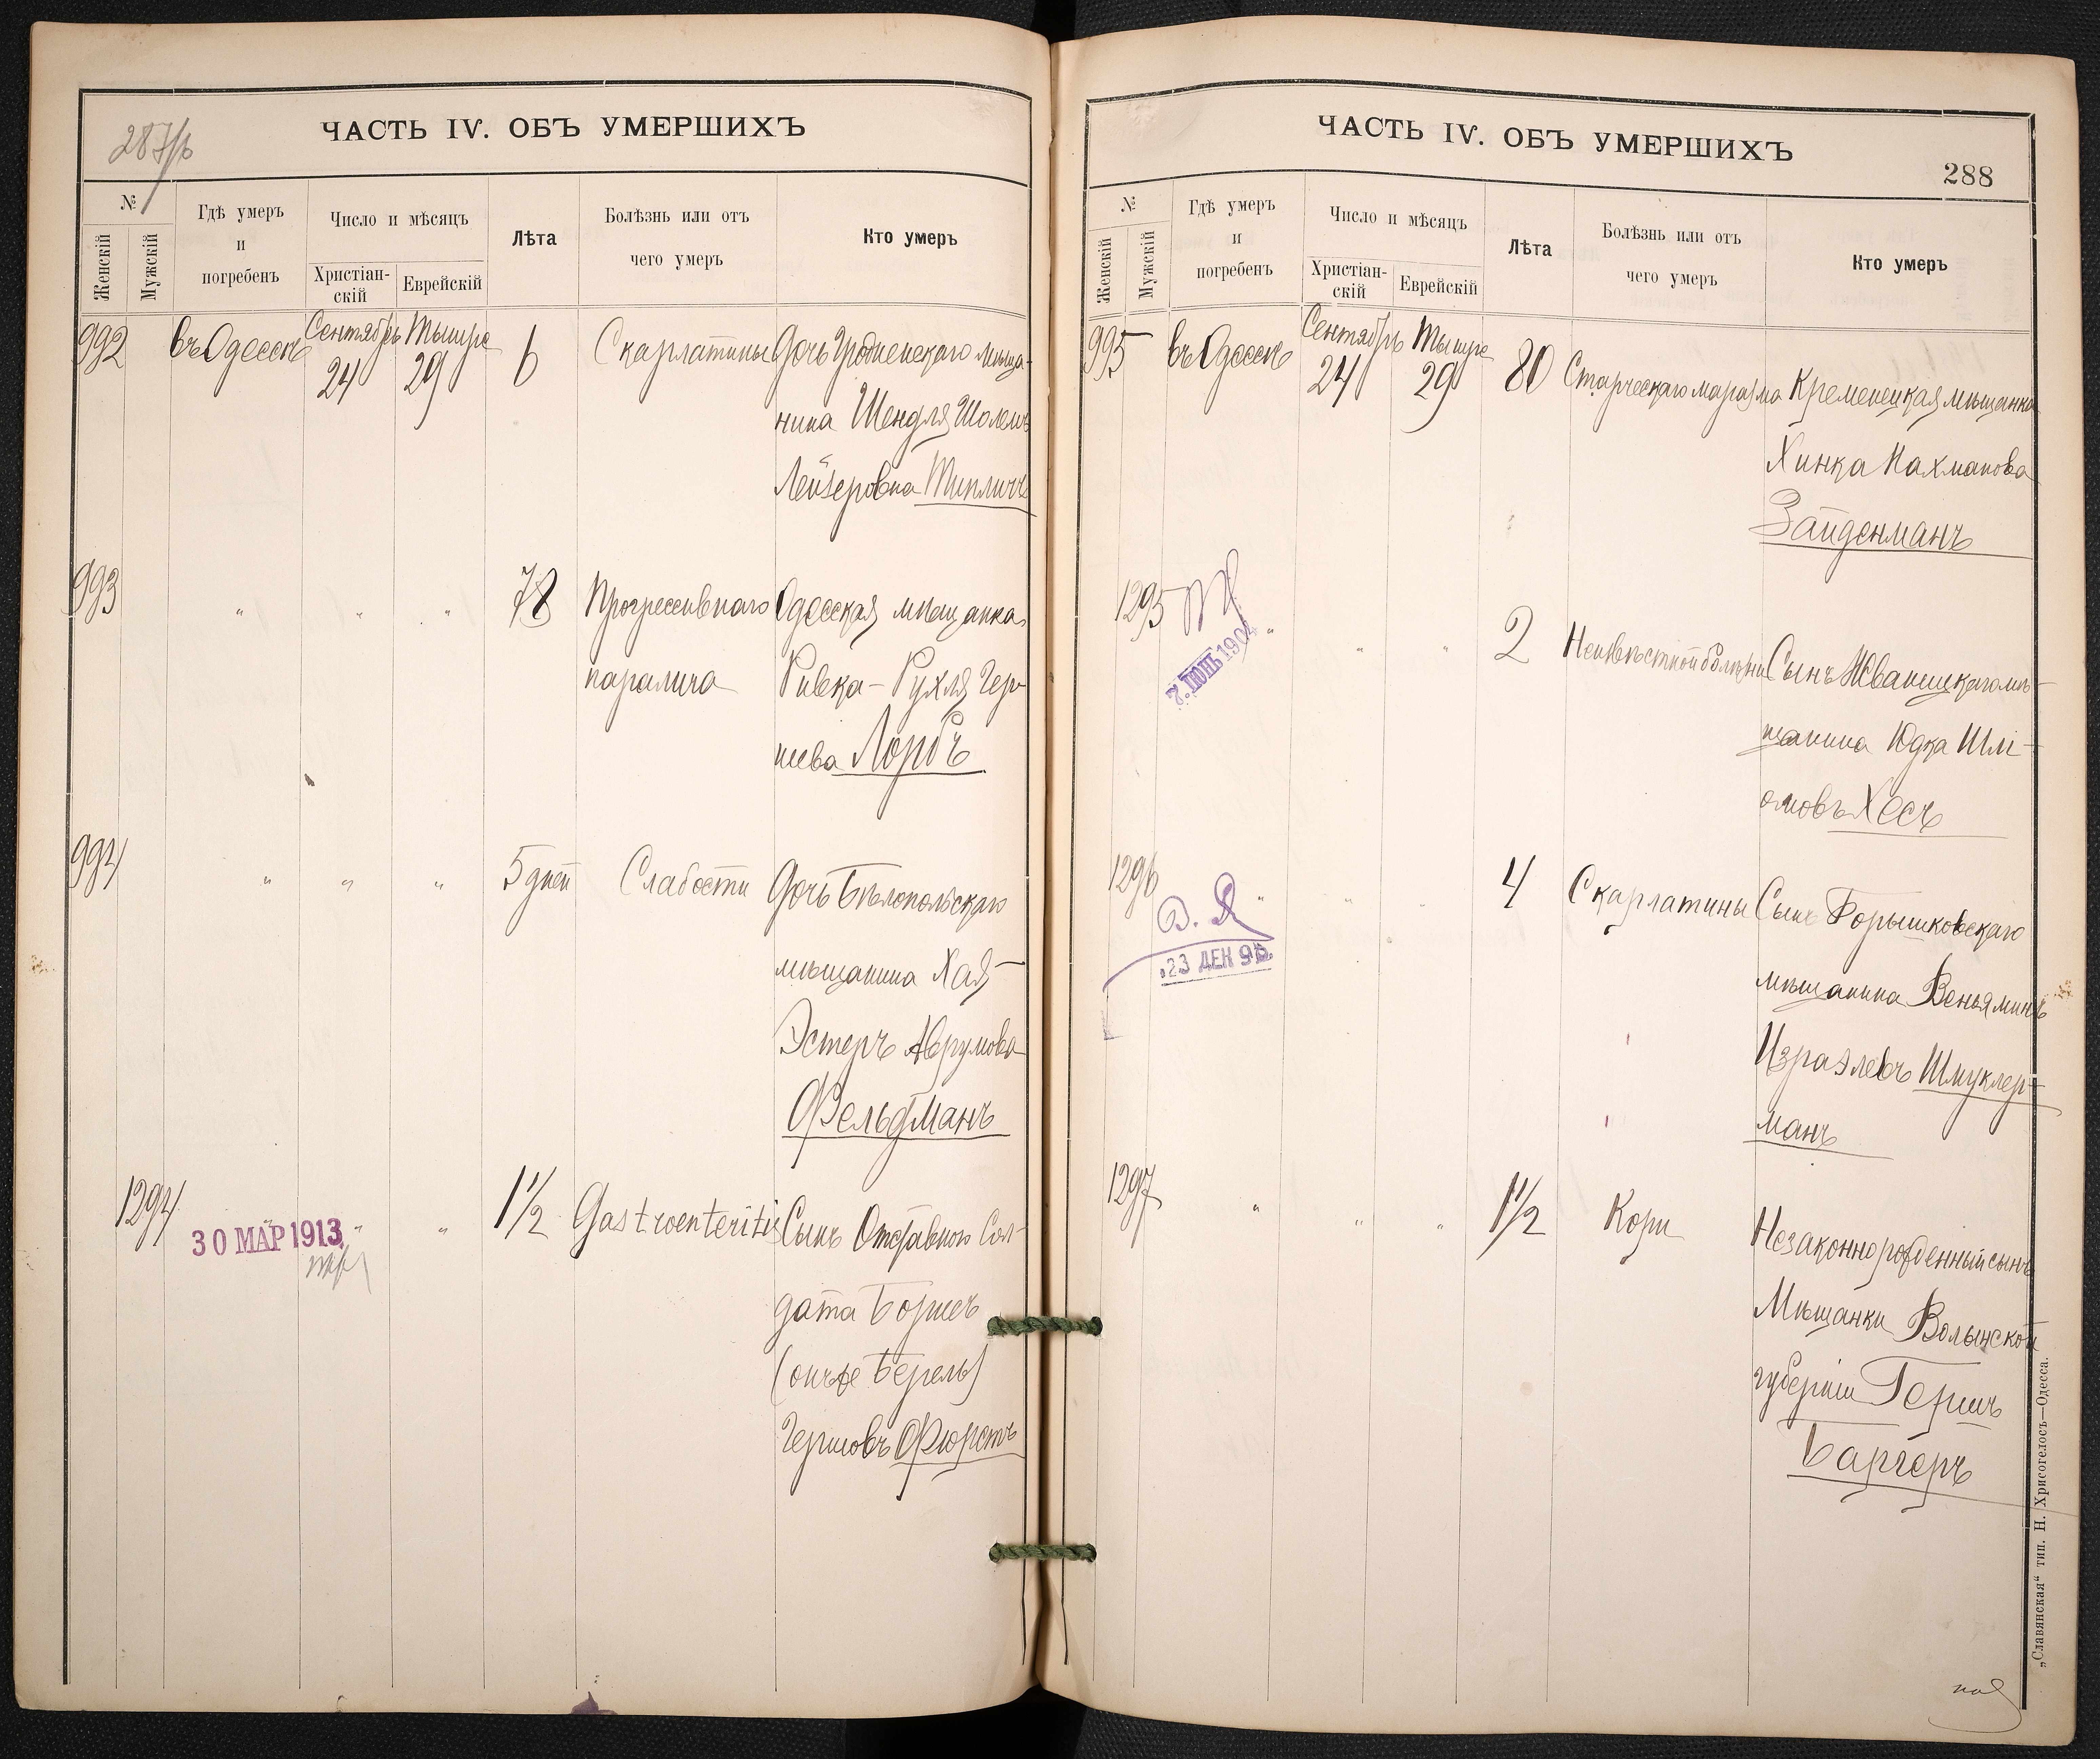 287/б
ЧАСТЬ IV. ОБЪ УМЕРШИХЪ
№
Женскій
Мужскій
Гдѣ умеръ
и
погребенъ
Число и мѣсяцъ
Христіан-
скій
Еврейскій
Лѣта
Болѣзнь или отъ
чего умеръ
Кто умеръ
992 въ Одессѣ Сентябрь 24 Тышре 29 6 Скарлатины Дочь Гродненскаго мѣща-
нина Шендля Шолемъ
Лейзеровна Типличъ
993 " " " 78 Прогрессивнаго Одесская мѣщанка
паралича Ривка-Рухля Гер-
шева Лорбъ
994 " " " 5 дней Слабости Дочь Бѣлопольскаго
мѣщанина Хая-
Эстеръ Аврумова
Фельдманъ
1294 " " " 1 1/2 Gastroenteritis Сынъ Отставного Сол-
30 МАР 1913
дата Борисъ
(онъ же Берель)
Гершовъ Фюрстъ
ЧАСТЬ IV. ОБЪ УМЕРШИХЪ
288
№
Женскій
Мужскій
Гдѣ умеръ
и
погребенъ
Число и мѣсяцъ
Христіан-
скій
Еврейскій
Лѣта
Болѣзнь или отъ
чего умеръ
Кто умеръ
995 въ Одессѣ Сентябрь 24 Тышре 29 80 Старческаго маразма Кременецкая мѣщанка
Хинка Нахманова
Зайденманъ
1295 " " " 2 Неизвѣстной болѣзни Сынъ Жванецкаго мѣ-
7. ІЮНЬ 1904
щанина Юдка Шлі-
омовъ Хесъ
1296 " " " 4 Скарлатины Сынъ Борышковскаго
23 ДЕК 96
мѣщанина Веньяминъ
Израэлевъ Шмуклер-
манъ
1297 " " " 1 1/2 Кори Незаконнорожденный сынъ
Мѣщанки Волынской
губерніи Гершъ
Баргеръ
„Славянская“ тип. Н. Хрисогелосъ—Одесса.